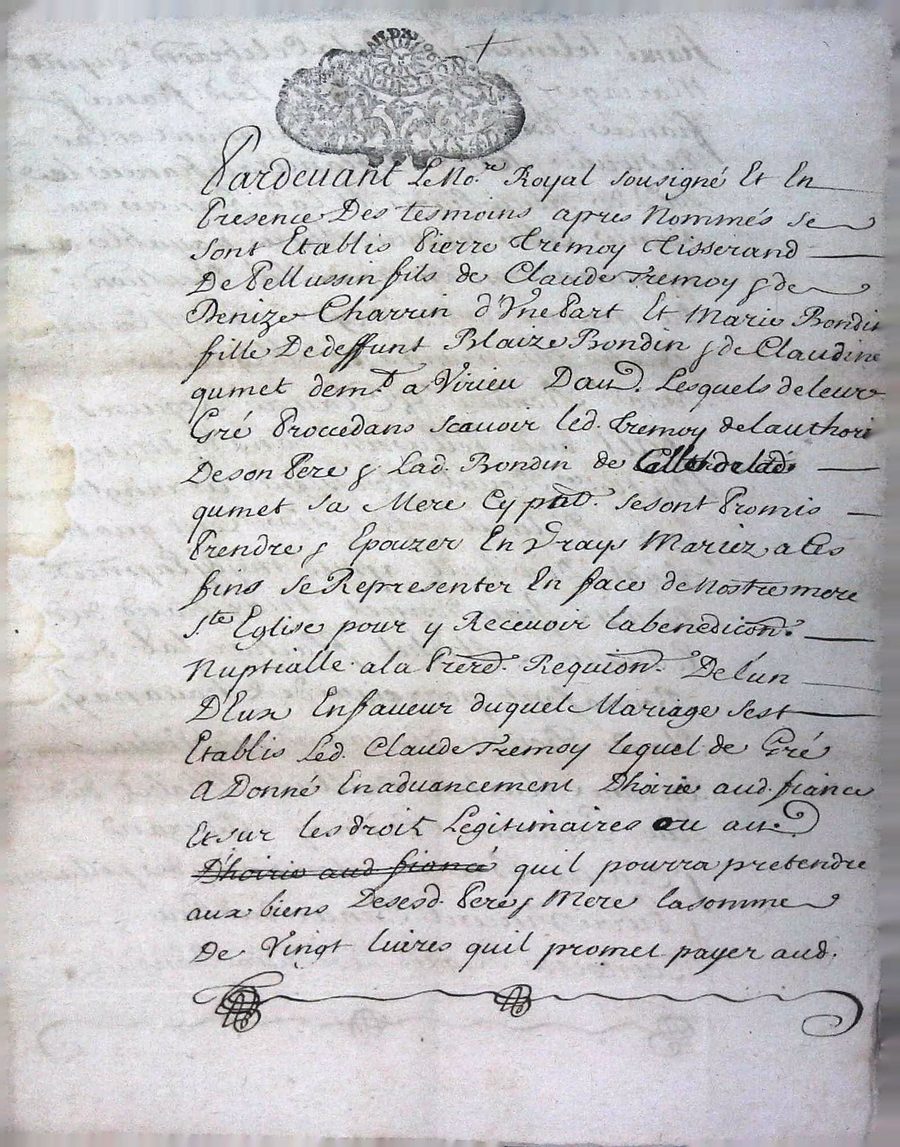 Pardevant Le No.re Royal sousigné Et En
Presence Des tesmoins apres Nommés se
sont Etablis Pierre Tremoy Tisserand
De Pellussin fils de Claude Tremoy & de
Denize Charrin d'Vne Part Et Marie Bondin
fille De deffunt Blaize Bondin & de Claudine
qumet dem.t a Virieu Lesquels de leur
Gré Proccedans scavoir led. Tremoy de lauthori
De son Pere & Lad. Bondin de
qumet sa Mere Cy sesont Promis
Prendre & Epouzer En Vrays Mariez a Ces
fins se Representer En face de Nostre mere
s.te Eglise pour y Recevoir la benedicon.
Nuptialle a la Prere. Requion. De l'un
D'Eux En faveur duquel Mariage sest
Etablis Led. Claude Tremoy lequel de Gré
A Donné En advancement D'hoirie aud. fiance
Et sur les droit Legitimaires ou au.
D'hoirie aud fiancé quil pourra pretendre
aux biens De sesd. Pere & Mere la somme
De Vingt livres quil promet payer aud.